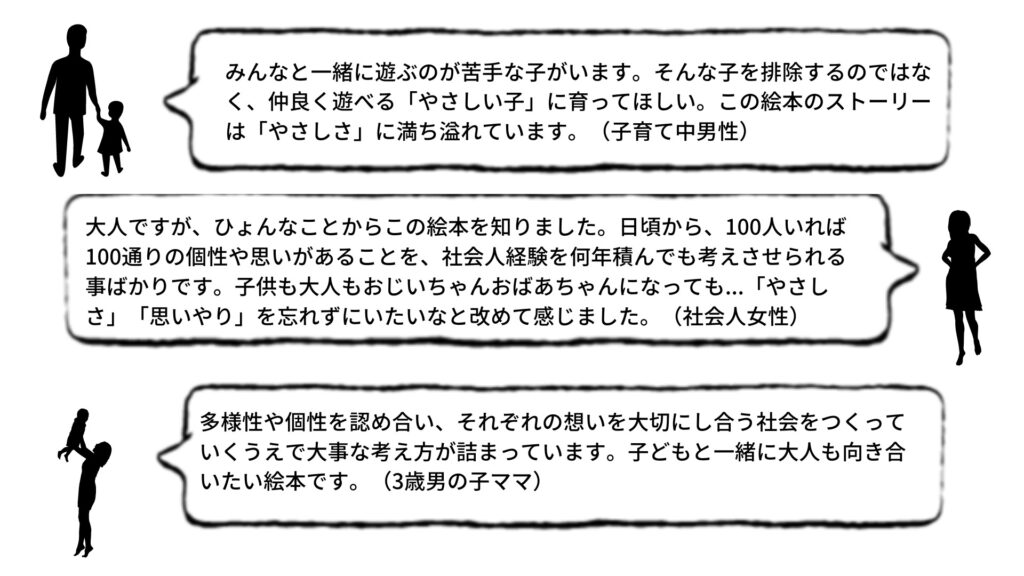 みんなと一緒に遊ぶのが苦手な子がいます。そんな子を排除するのではな
く、仲良く遊べる「やさしい子」に育ってほしい。この絵本のストーリー
は「やさしさ」に満ち溢れています。（子育て中男性）
大人ですが、ひょんなことからこの絵本を知りました。日頃から、100人いれば
100通りの個性や思いがあることを、社会人経験を何年積んでも考えさせられる
事ばかりです。子供も大人もおじいちゃんおばあちゃんになっても...「やさし
さ」「思いやり」を忘れずにいたいなと改めて感じました。（社会人女性）
多様性や個性を認め合い、それぞれの想いを大切にし合う社会をつくって
いくうえで大事な考え方が詰まっています。子どもと一緒に大人も向き合
いたい絵本です。（3歳男の子ママ）